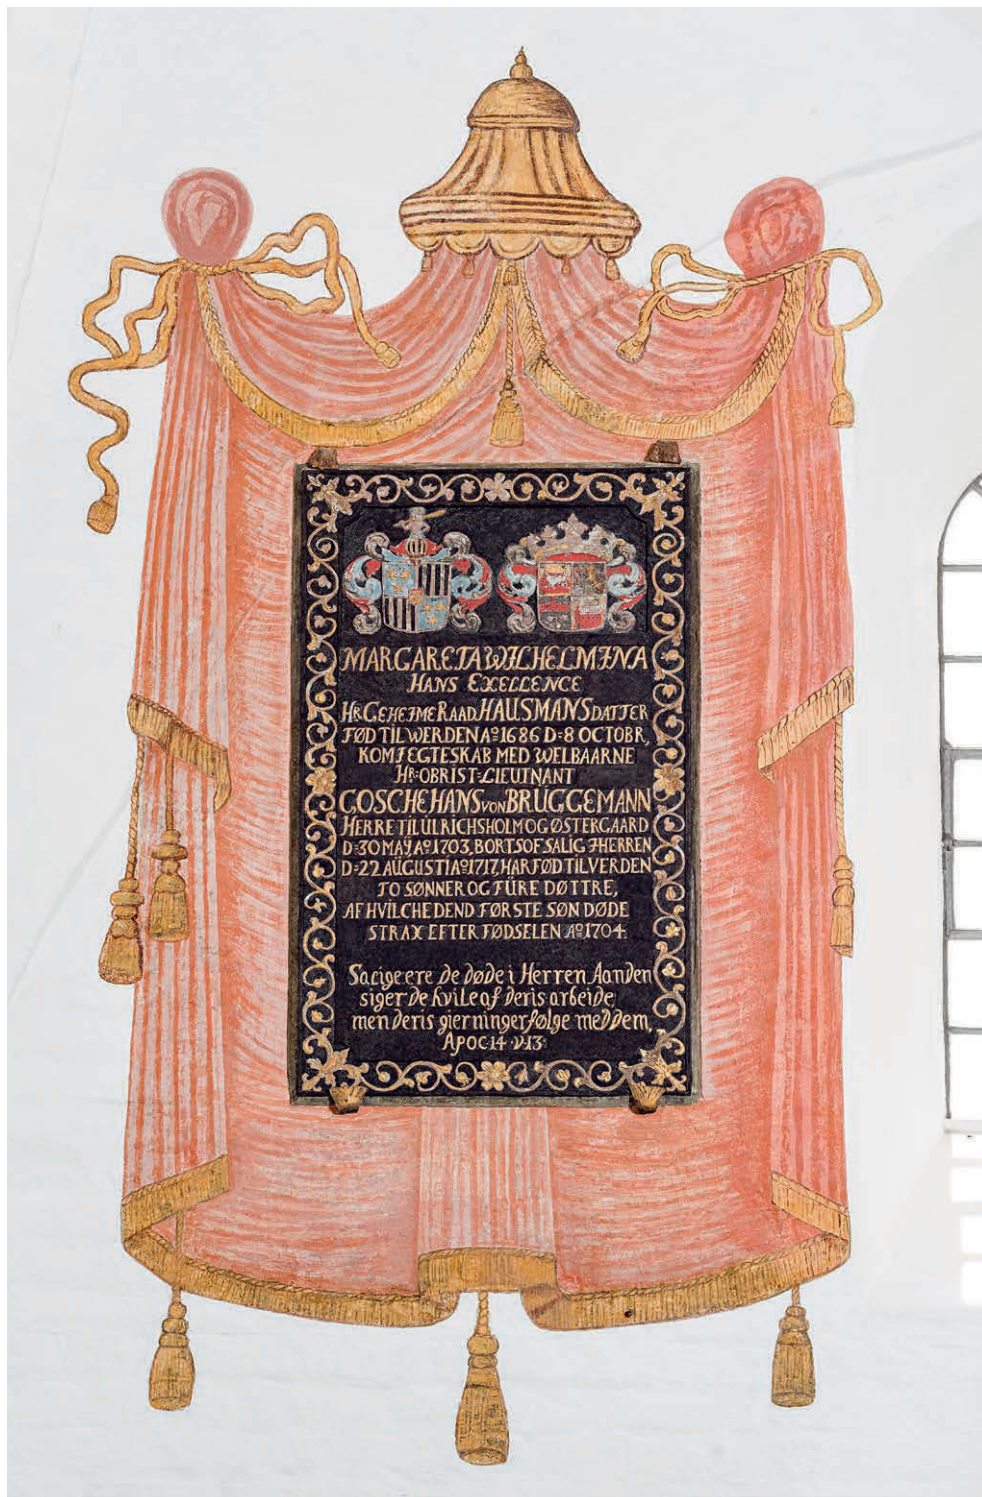 MARGARETA WILHELMINA
HANS EXELLENCE
HR GEHEIME RAAD HAUSMANS DATTER
FØD TIL WERDEN Aº 1686 D=8 OCTOBR,
KOM I EGTESKAB MED WELBAARNE
HR=OBRIST=LIEUTNANT
GOSCHE HANS VON BRUGGEMANN
HERRE TIL ULRICHSHOLM OG ØSTERGAARD
D=30 MAY Aº 1703, BORTSOF SALIG I HERREN
D=22 AUGUSTI Aº 1717, HAR FØD TIL VERDEN
TO SØNNER OG FÜRE DØTTRE,
AF HVILCHE DEND FØRSTE SØN DØDE
STRAX EFTER FØDSELEN Aº 1704.
Salige ere de døde i Herren Aanden
siger de hvile af deris arbeide,
men deris gierninger følge med dem,
APOC·14·V·13·